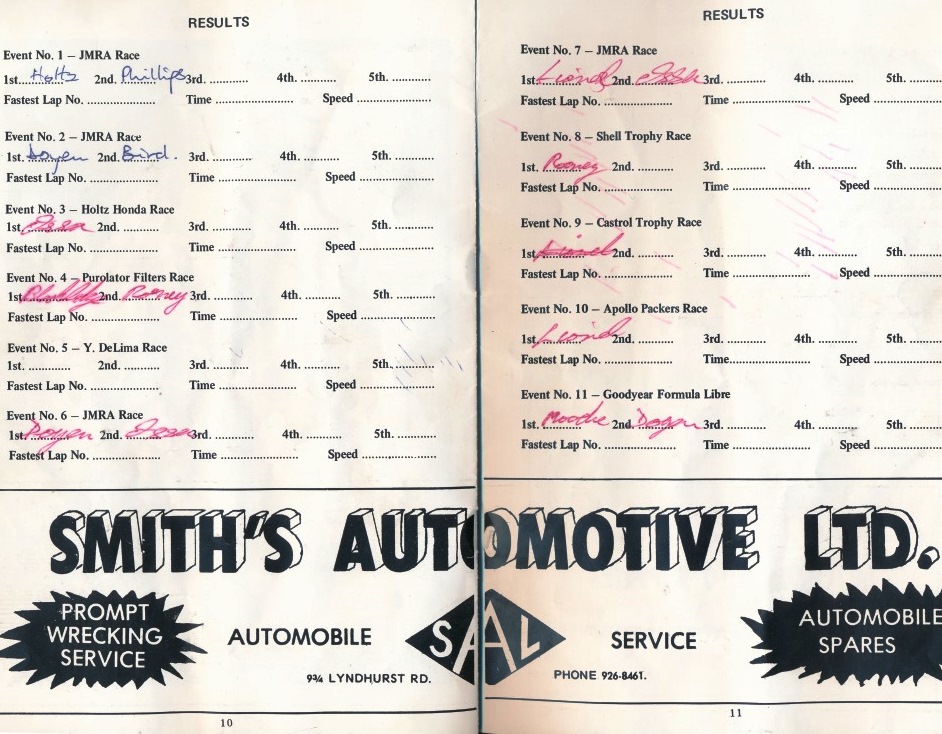 RESULTS
Event No. 1 – JMRA Race
1st. Holtz 2nd. Phillips 3rd. ............ 4th. .......... 5th. ............
Fastest Lap No. .................. Time ..................... Speed ......................
Event No. 2 – JMRA Race
1st. Doyen 2nd. Bird. 3rd. ............ 4th. .......... 5th. ............
Fastest Lap No. .................. Time ..................... Speed ......................
Event No. 3 – Holtz Honda Race
1st. Issa 2nd. .......... 3rd. ............ 4th. .......... 5th. ............
Fastest Lap No. .................. Time ..................... Speed ......................
Event No. 4 – Purolator Filters Race
1st. 2nd. Rooney 3rd. ............ 4th. .......... 5th. ............
Fastest Lap No. .................. Time ..................... Speed ......................
Event No. 5 – Y. DeLima Race
1st. ............ 2nd. .......... 3rd. ............ 4th. .......... 5th. ............
Fastest Lap No. .................. Time ..................... Speed ......................
Event No. 6 – JMRA Race
1st. Doyen 2nd. 3rd. ............ 4th. .......... 5th. ............
Fastest Lap No. .................. Time ..................... Speed ......................
SMITH'S AUTOMOTIVE LTD.
PROMPT
WRECKING
SERVICE
AUTOMOBILE
9¾ LYNDHURST RD.
SAL
10
RESULTS
Event No. 7 – JMRA Race
1st. Lionel 2nd. Issa 3rd. ............ 4th. .......... 5th.
Fastest Lap No. .................. Time ..................... Speed
Event No. 8 – Shell Trophy Race
1st. Rooney 2nd. .......... 3rd. ............ 4th. .......... 5th.
Fastest Lap No. .................. Time ..................... Speed
Event No. 9 – Castrol Trophy Race
1st. Lionel 2nd. .......... 3rd. ............ 4th. .......... 5th.
Fastest Lap No. .................. Time ..................... Speed
Event No. 10 – Apollo Packers Race
1st. Lionel 2nd. .......... 3rd. ............ 4th. .......... 5th.
Fastest Lap No. .................. Time ..................... Speed
Event No. 11 – Goodyear Formula Libre
1st. Moodie 2nd. 3rd. ............ 4th. .......... 5th.
Fastest Lap No. .................. Time ..................... Speed
SERVICE
PHONE 926-8461.
AUTOMOBILE
SPARES
11